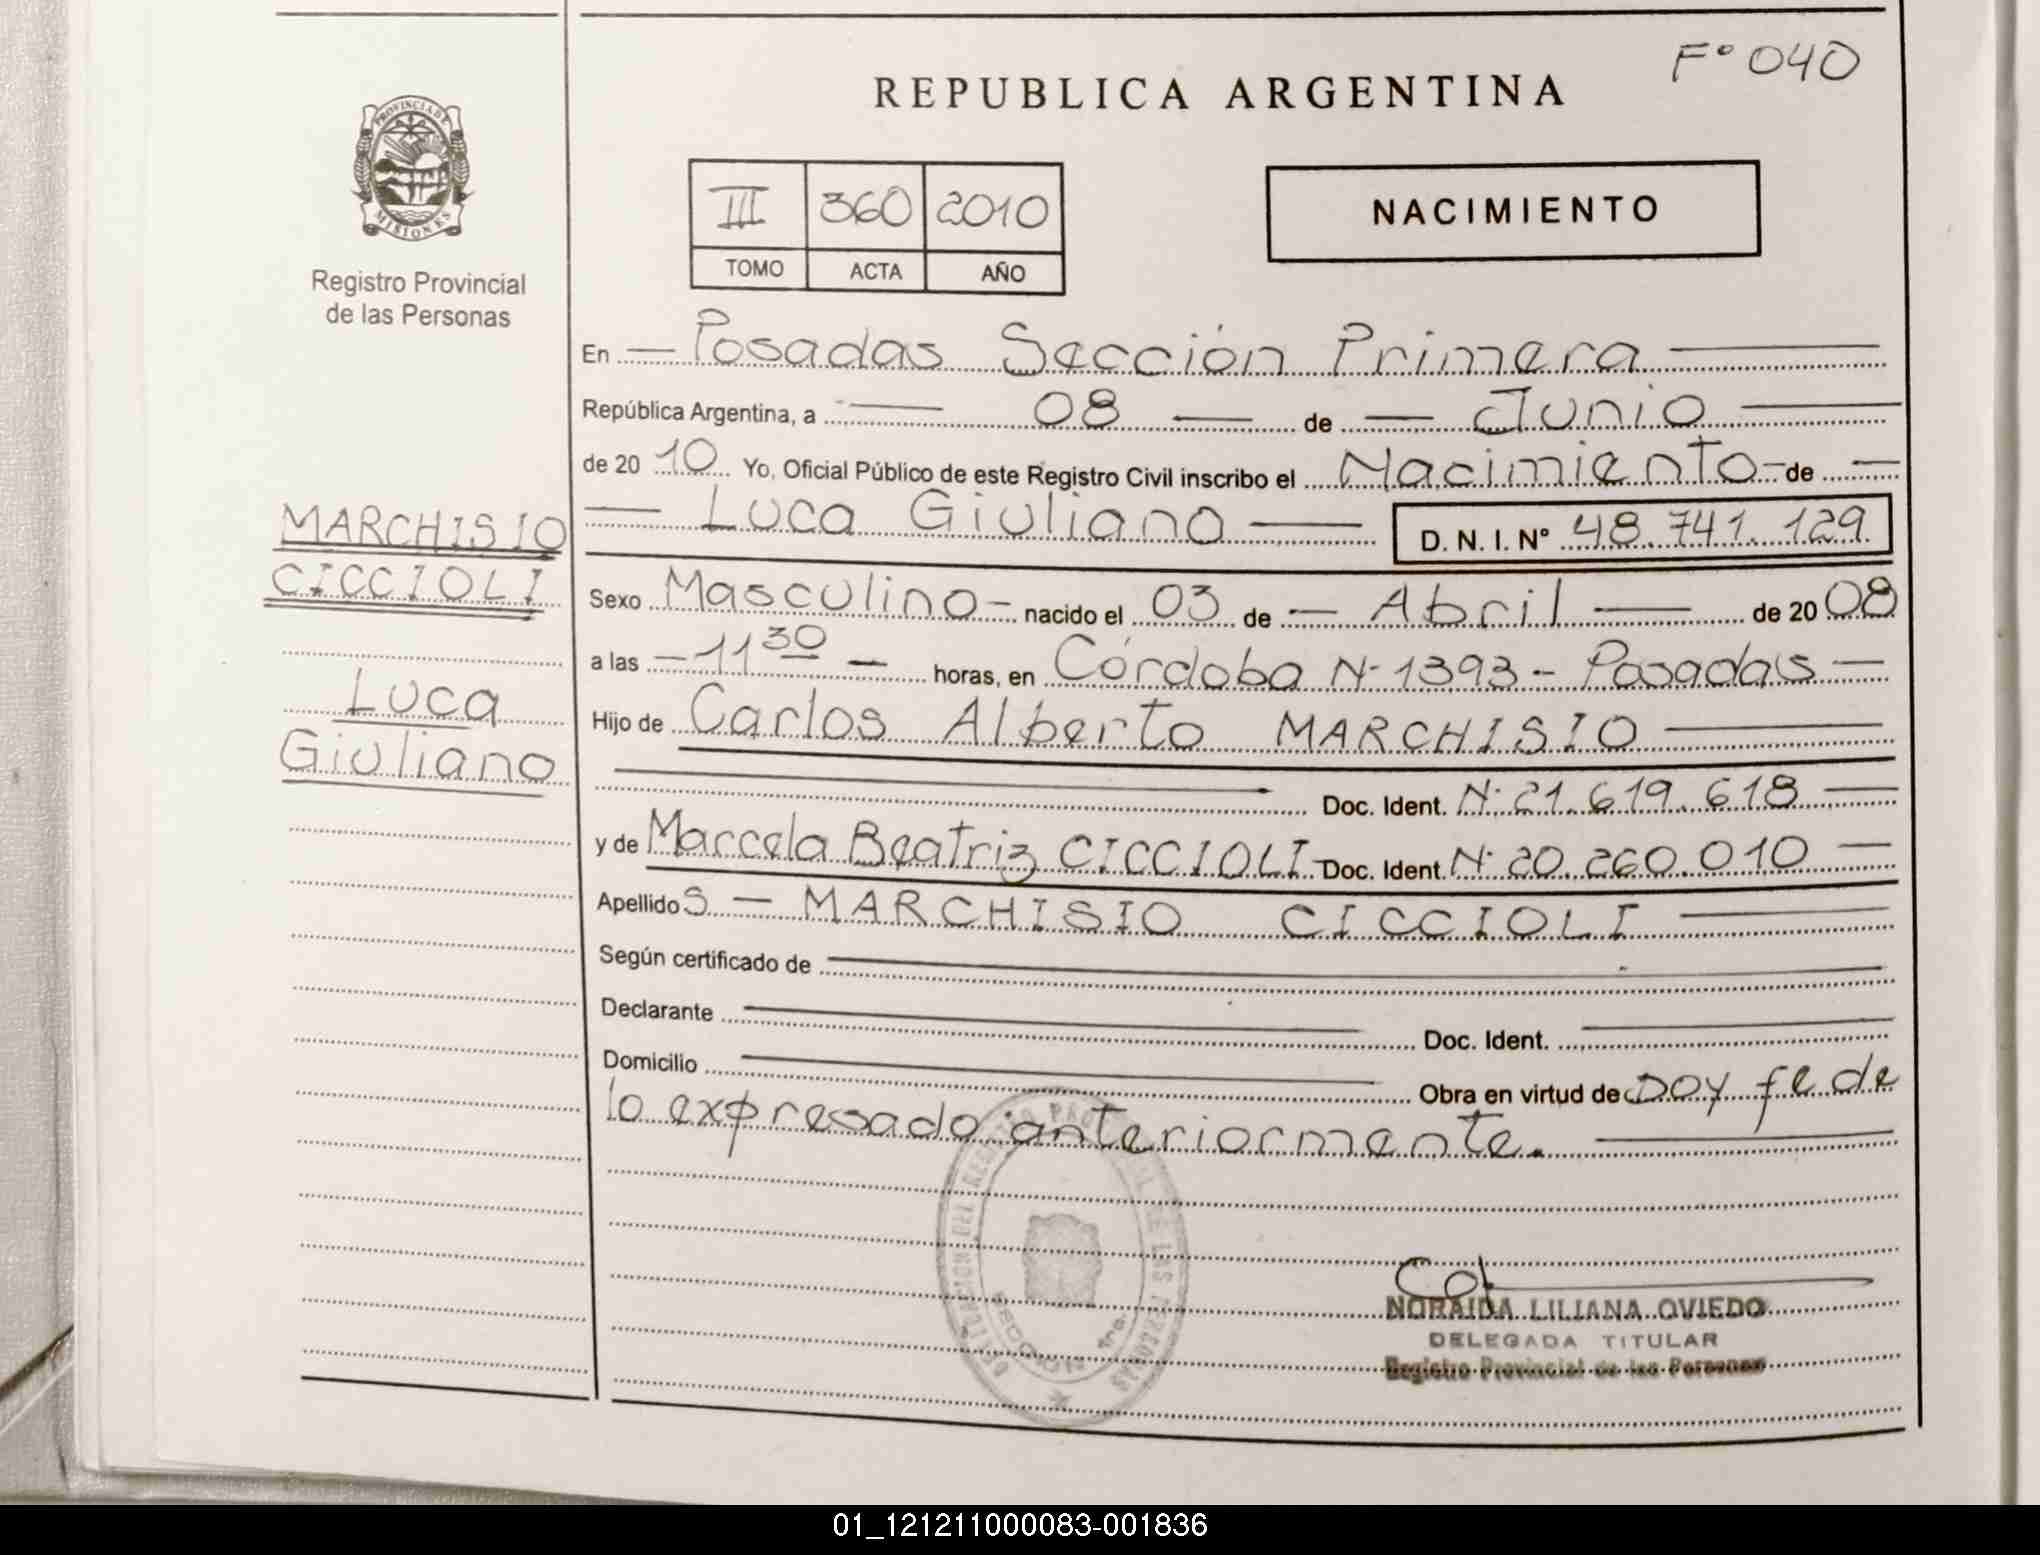 F° 040
REPUBLICA ARGENTINA
PROVINCIA DE
MISIONES
Registro Provincial
de las Personas
III 360 2010
TOMO ACTA AÑO
NACIMIENTO
En Posadas Sección Primera
República Argentina, a 08 de Junio
de 20 10 Yo, Oficial Público de este Registro Civil inscribo el Nacimiento de
Luca Giuliano D. N. I. N° 48.741.129
MARCHISIO
CICCIOLI
Luca
Giuliano
Sexo Masculino nacido el 03 de Abril de 20 08
a las 11 30 horas, en Córdoba N· 1393 - Posadas
Hijo de Carlos Alberto MARCHISIO
Doc. Ident. N· 21.619.618
y de Marcela Beatriz CICCIOLI Doc. Ident. N· 20.260.010
Apellido S MARCHISIO CICCIOLI
Según certificado de
Declarante Doc. Ident.
Domicilio Obra en virtud de DOY fe de
lo expresado anteriormente.
NORAIDA LILIANA OVIEDO
DELEGADA TITULAR
Registro Provincial de las Personas
01_121211000083-001836